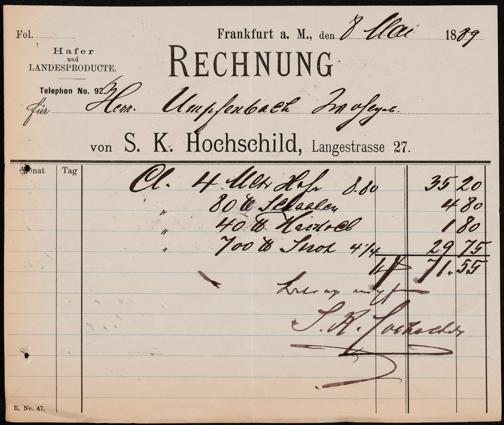 Fol.
Frankfurt a. M., den 8 Mai 1889
Hafer
und
LANDESPRODUCTE.
RECHNUNG
Telephon No. 92.
für Herrn Umpfenbach
von S. K. Hochschild, Langestrasse 27.
Monat Tag
4 Mltr Hafer 8.80 35 20
80 ℔ 4 80
40 ℔ 1 80
700 ℔ Stroh 4 1/4 29 75
71.55
S. K. Hochschild
R. No. 47.